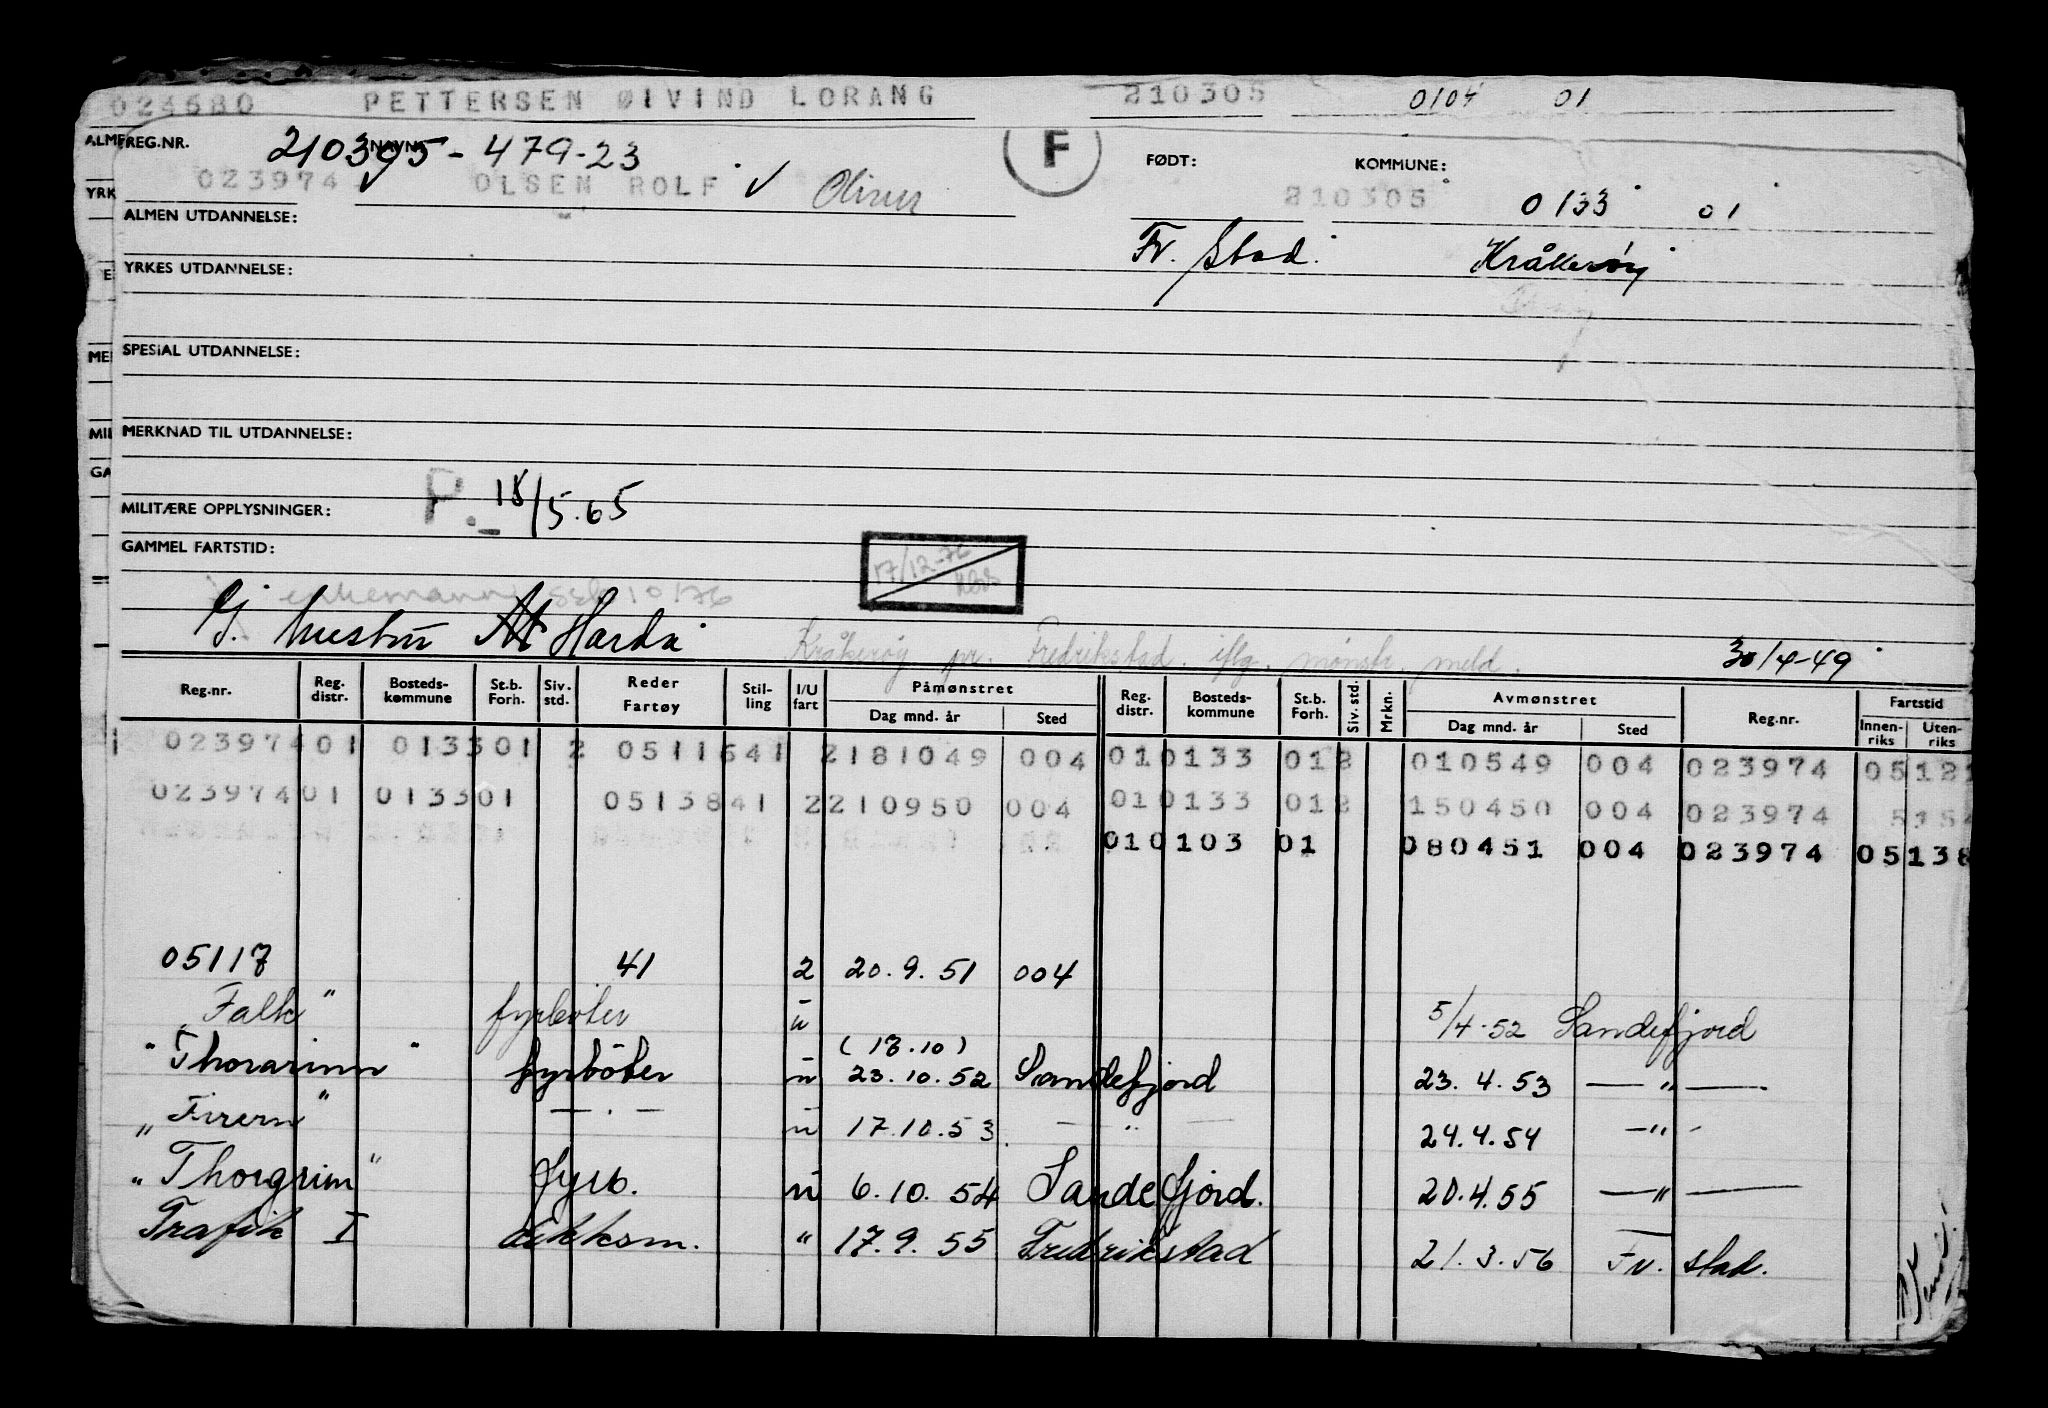 023580 PETTERSEN ØIVIND LORANG 210305 0104 01
ALME REG.NR. 210305-479-23 NAVN: F FØDT: KOMMUNE:
YRK 023974 ✓ OLSEN ROLF ✓ Oliver 210305 0133 01
ALMEN UTDANNELSE: Fr. stad. Kråkerøy
E YRKES UTDANNELSE:
MEI SPESIAL UTDANNELSE:
MII MERKNAD TIL UTDANNELSE:
GA
MILITÆRE OPPLYSNINGER: P.- 18/5.65
GAMMEL FARTSTID: 17/12-76
10/76
G. hustru Harda Kråkerøy pr. Fredrikstad. iflg. mønstr. meld. 30/4-49
Reg.nr. Reg. distr. Bosteds- kommune St.b. Forh. Siv. std. Reder Fartøy Stil- ling I/U fart Påmønstret Reg. distr. Bosteds- kommune St.b. Forh. Siv. std. Mrkn. Avmønstret Reg.nr. Fartstid
Dag mnd. år Sted Dag mnd. år Sted Innen- riks Uten- riks
1 023974 01 0133 01 2 0511641 2 181049 004 01 0133 01 2 010549 004 023974 05121
023974 01 0133 01 0513841 2 210950 004 01 0133 01 2 150450 004 023974 5154
01 0103 01 080451 004 023974 05138
05117 41 2 20.9.51 004
"Falk" fyrbøter u 5/4-52 Sandefjord
(13.10)
"Thorarinn" fyrbøter u 23.10.52 Sandefjord 23.4.53 — " —
"Firern" — . — u 17.10.53. — " — 24.4.54 — " -
"Thorgrim" fyrb. u 6.10.54 Sandefjord. 20.4.55 — " —
Trafik I dekksm. " 17.9.55 Fredrikstad 21.3.56 Fr. stad.